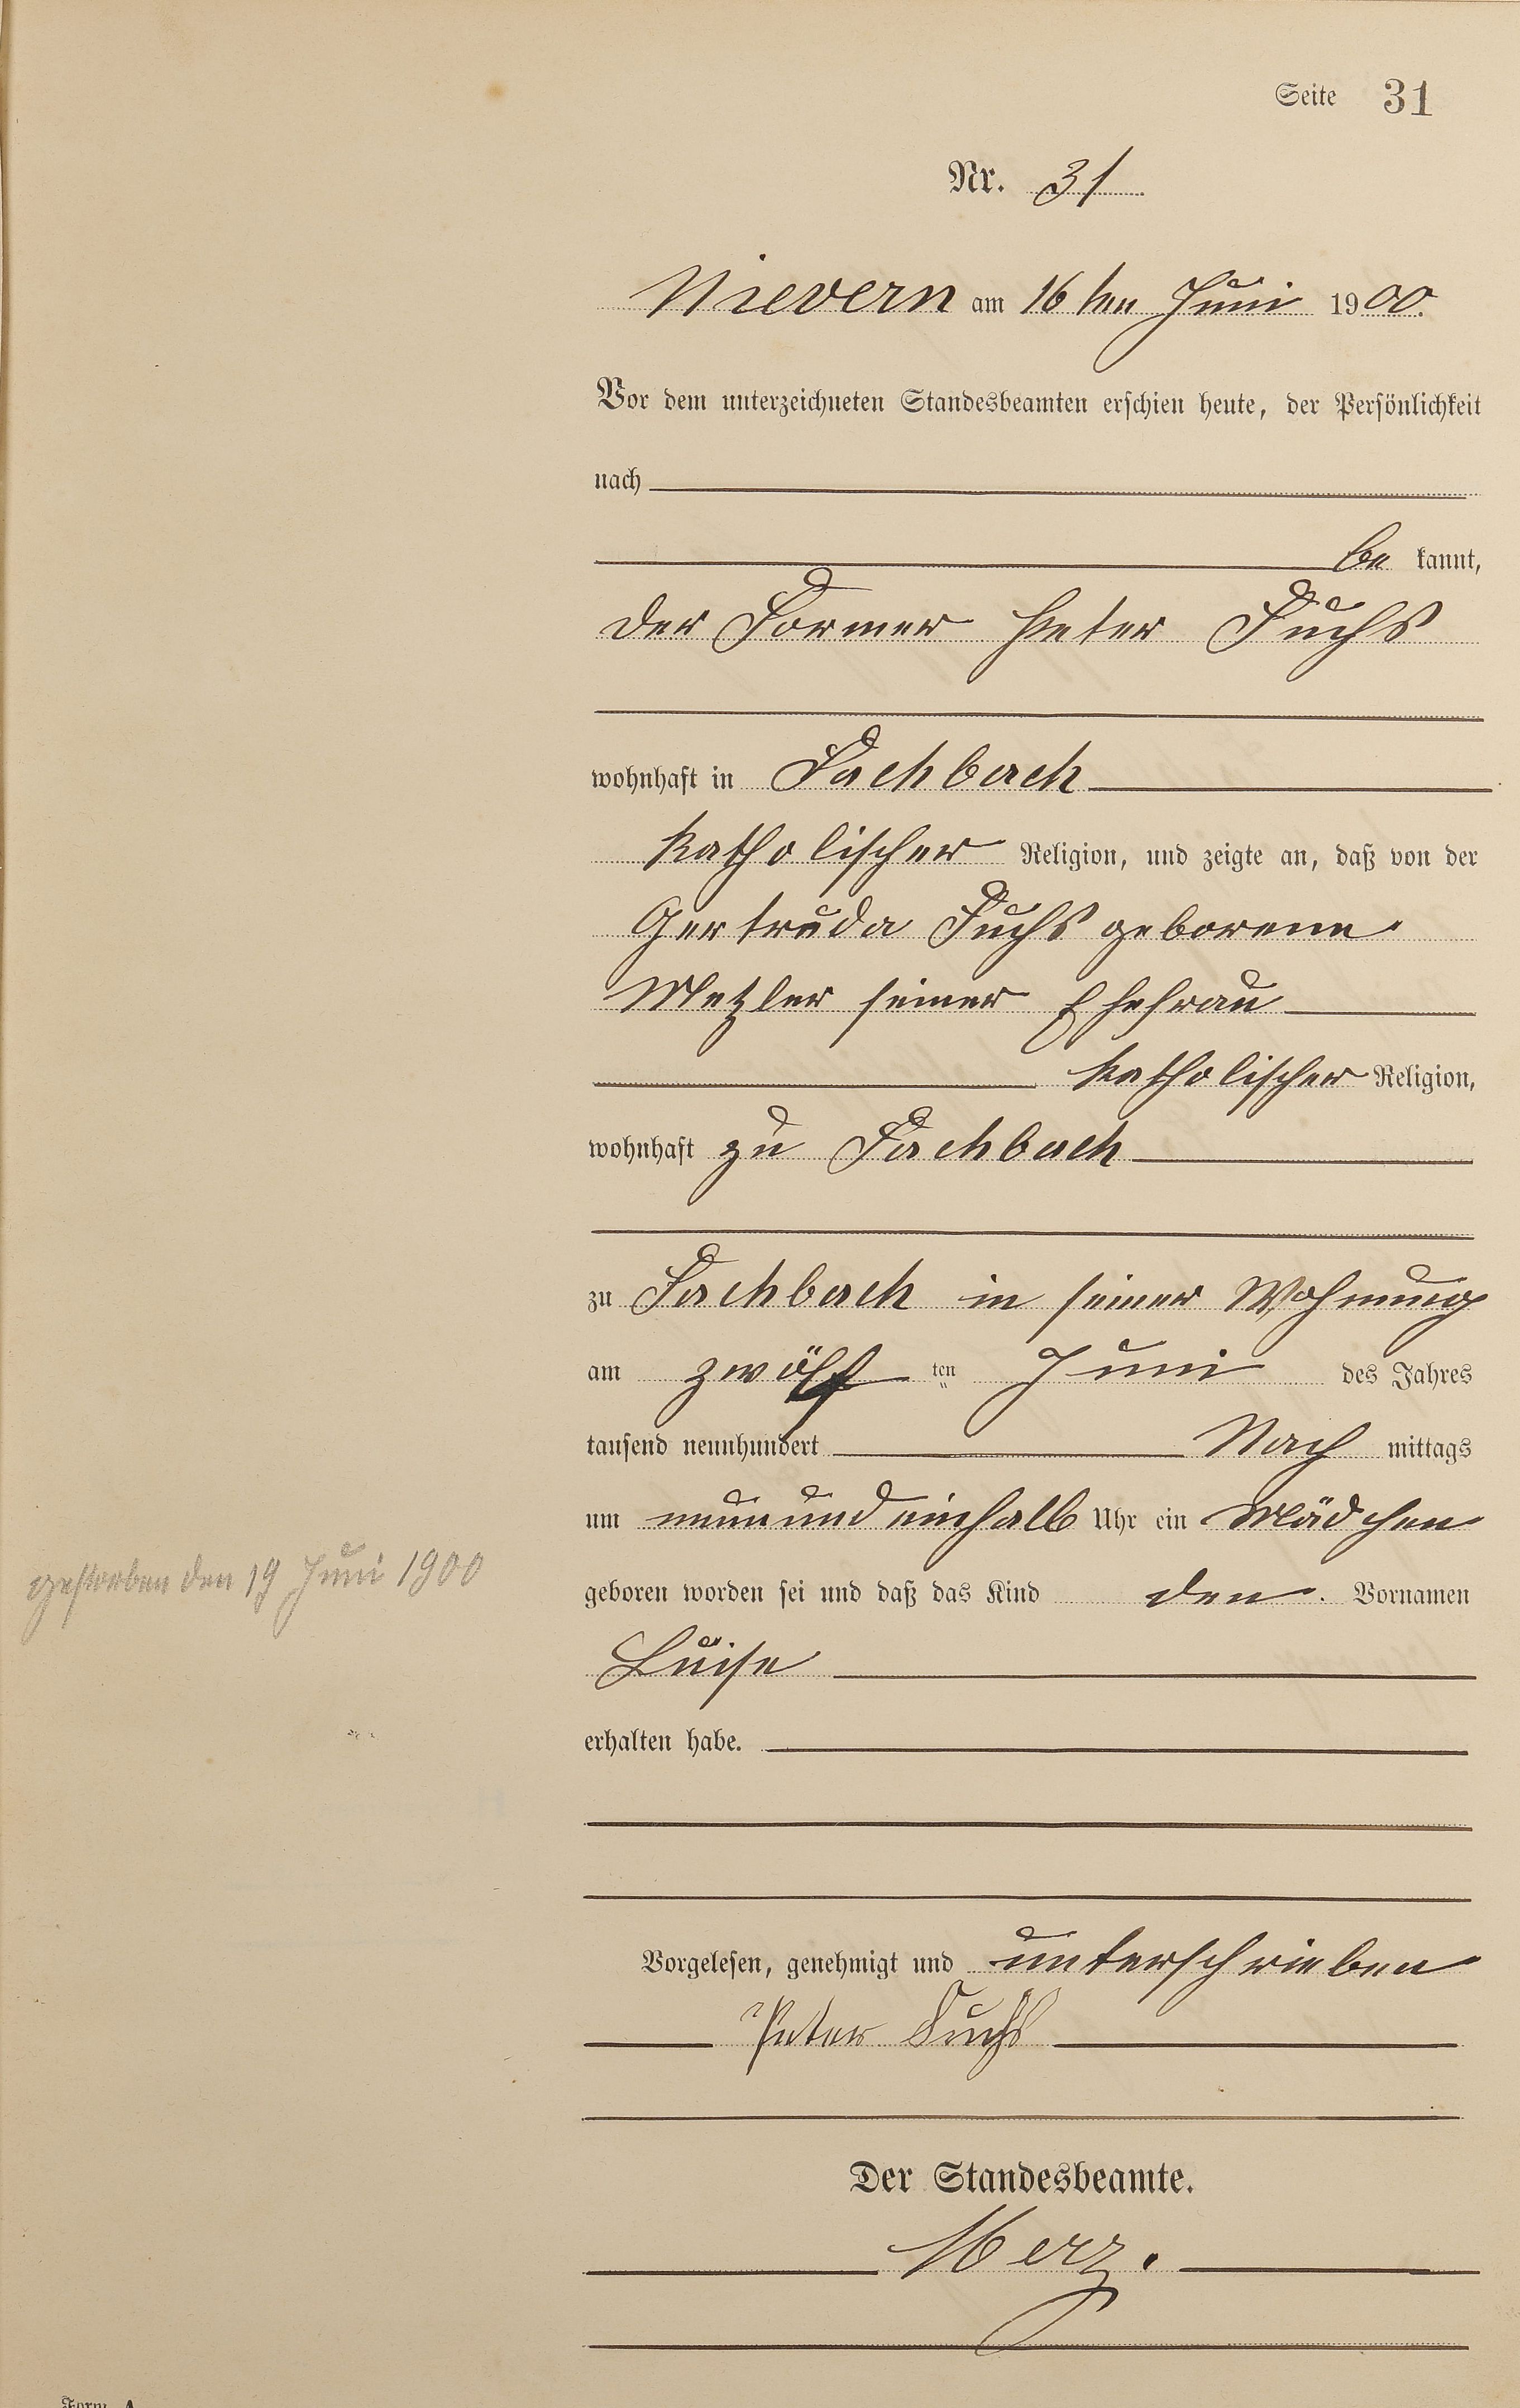 Seite 31
Nr. 31
Nievern am 16ten Juni 1900.
Vor dem unterzeichneten Standesbeamten erschien heute, der Persönlichkeit
nach
be kannt,
der Former Peter Fuchs
wohnhaft in Fachbach
katholischer Religion, und zeigte an, daß von der
Gertruda Fuchs geborene
Metzler seiner Ehefrau
katholischer Religion,
wohnhaft zu Fachbach
zu Fachbach in seiner Wohnung
am zwölf ten Juni des Jahres
tausend neunhundert Nach mittags
um neun und einhalb Uhr ein Mädchen
gestorben den 19 Juni 1900
geboren worden sei und daß das Kind den Vornamen
Luise
erhalten habe.
Vorgelesen, genehmigt und unterschrieben
Peter Fuchs
Der Standesbeamte.
Merz.
Form. A